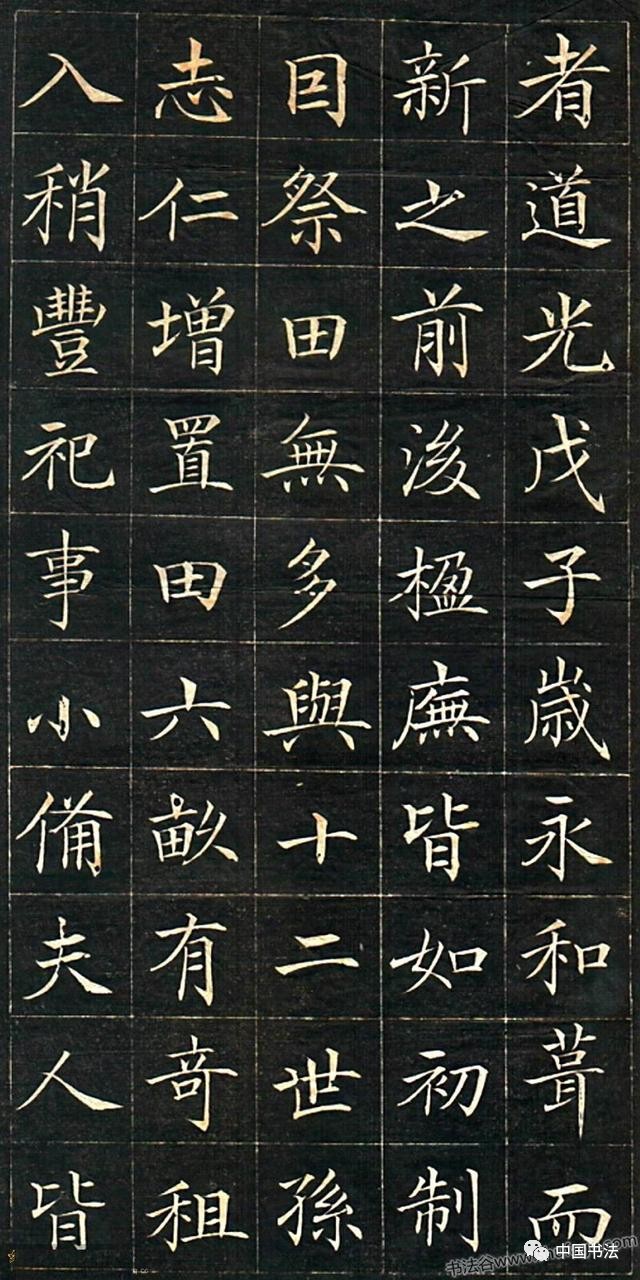 者道光戊子歲永和葺而
新之前後楹廡皆如初制
因祭田無多與十二世孫
志仁增置田六畝有奇租
入稍豐祀事小備夫人皆
中国书法